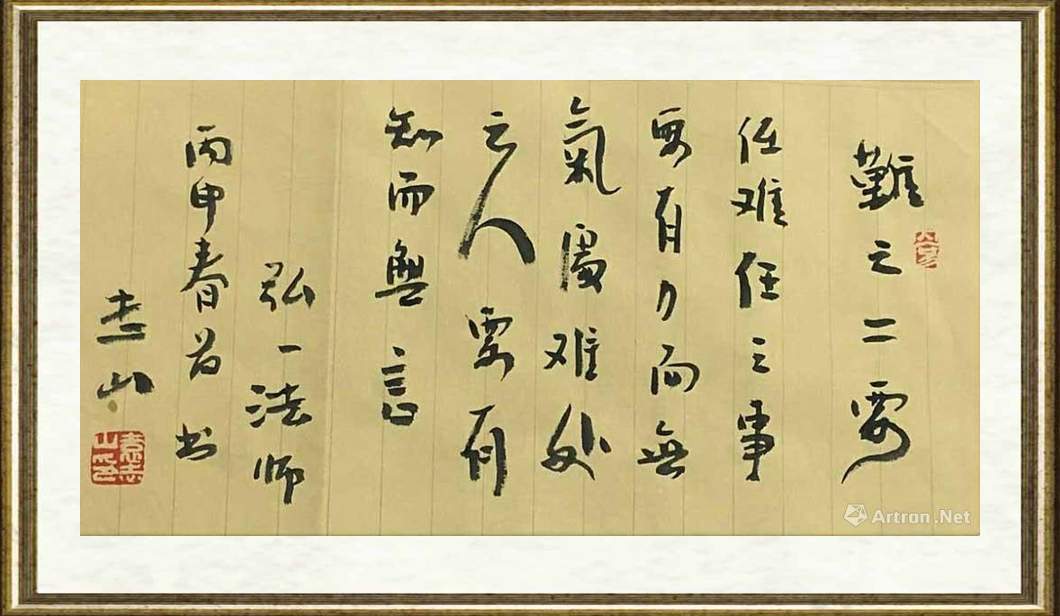 難之二要
任难任之事
要有力而無
氣處难处
之人要有
知而無言
弘一法师
丙申春首书
志山
袁志山印
Artron.Net